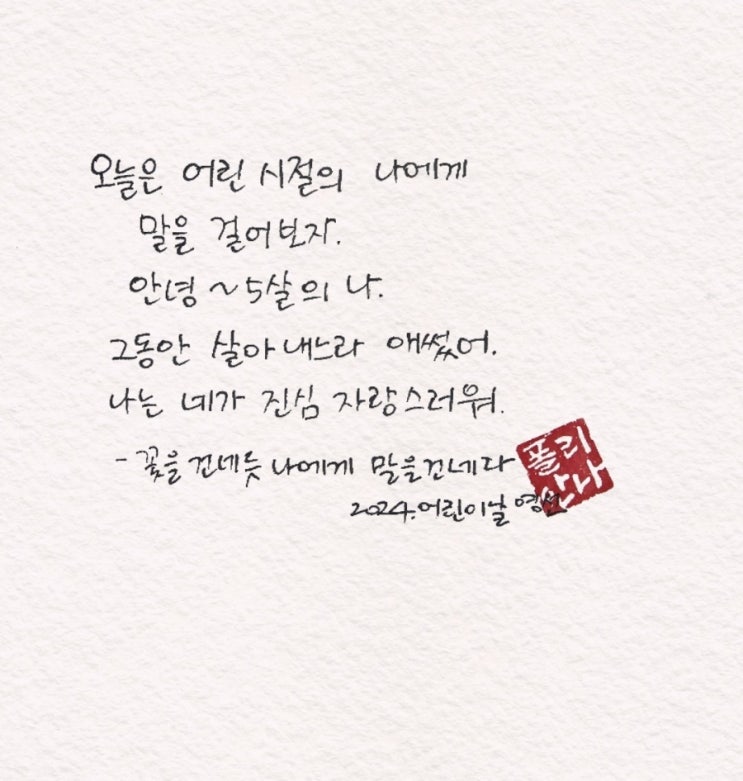 오늘은 어린 시절의 나에게
말을 걸어보자.
안녕 ~ 5살의 나.
그동안 살아내느라 애썼어.
나는 네가 진심 자랑스러워.
- 꽃을 건네듯 나에게 말을 건네다
2024. 어린이날 영선
폴리
안나